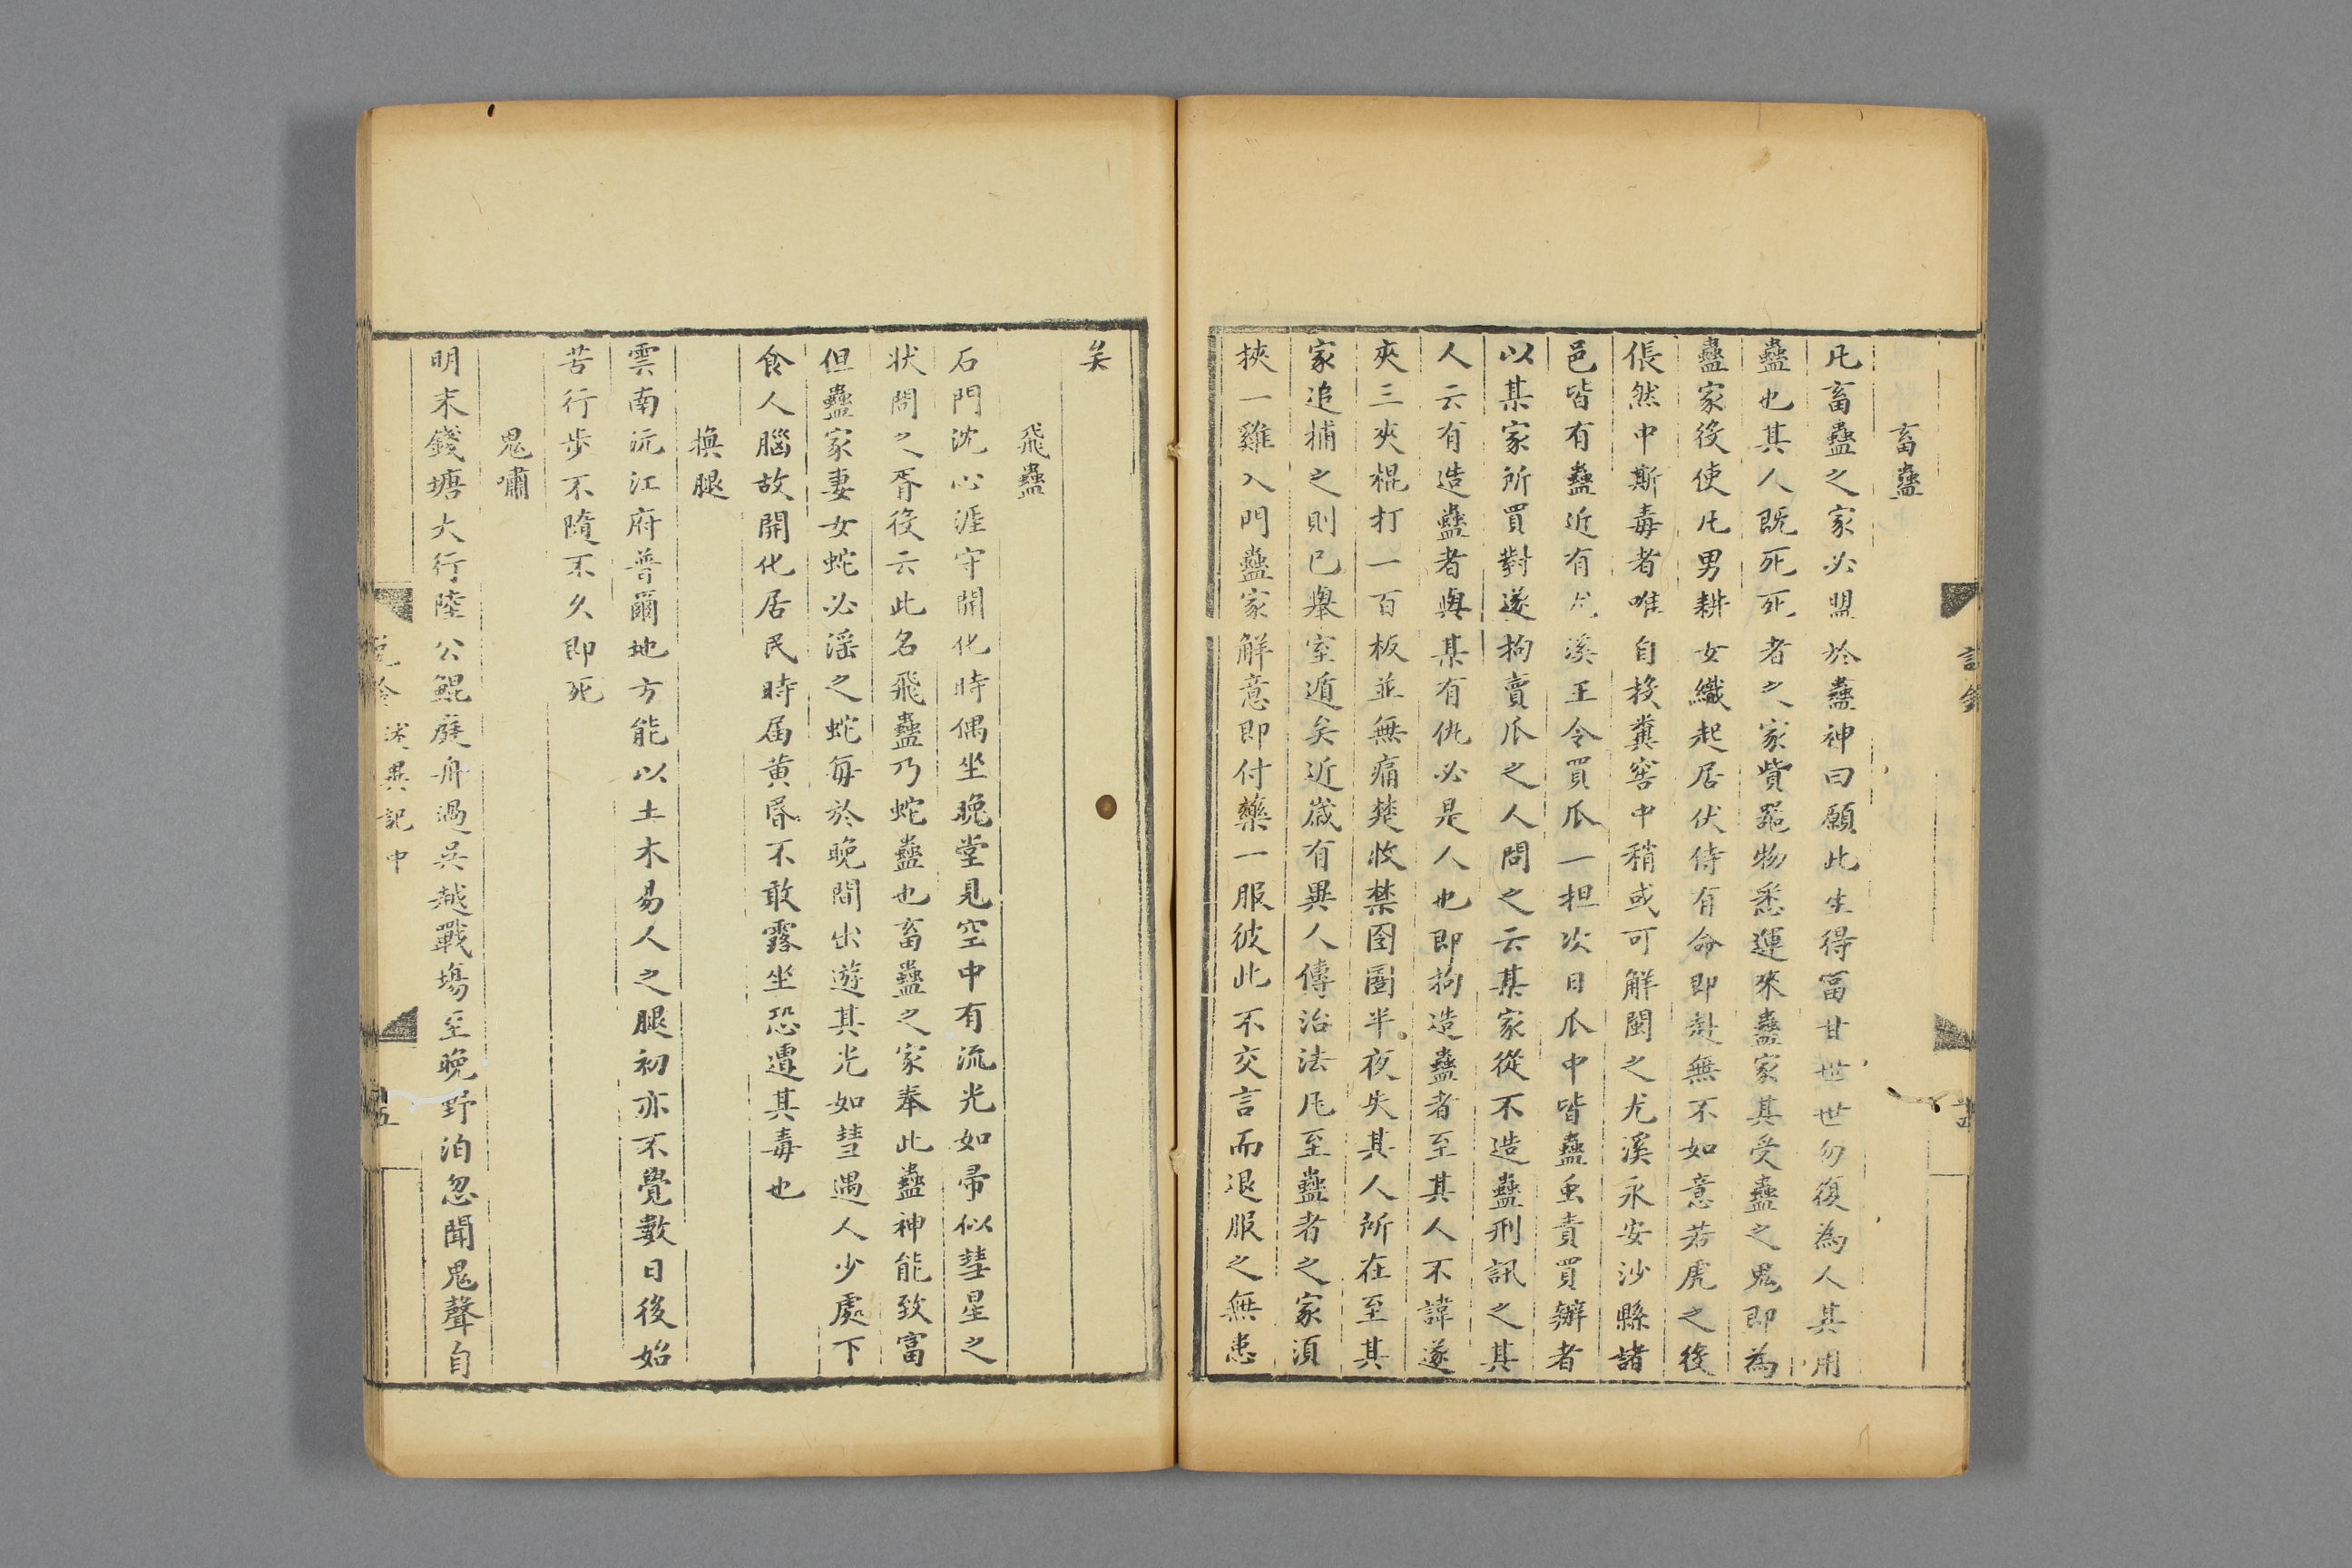 畜蠱
凡畜蠱之家必盟於蠱神曰願此生得富甘世世勿復為人其用
蠱也其人既死死者之家貲器物悉運來蠱家其受蠱之鬼即為
蠱家役使凡男耕女織起居伏侍有命即赴無不如意若虎之役
倀然中斯毒者唯自投糞窖中稍或可解閩之尤溪永安沙縣諸
邑皆有蠱近有尤溪王令買瓜一担次日瓜中皆蠱虫責買辦者
以某家所買對遂拘賣瓜之人問之云某家從不造蠱刑訊之其
人云有造蠱者與某有仇必是人也即拘造蠱者至其人不諱遂
夾三夾棍打一百板並無痛楚收禁囹圄半夜失其人所在至其
家追捕之則已舉室遁矣近歲有異人傳治法凡至蠱者之家須
挾一雞入門蠱家解意即付藥一服彼此不交言而退服之無恙
矣
飛蠱
石門沈心涯守開化時偶坐晚堂見空中有流光如帚似彗星之
狀問之胥役云此名飛蠱乃蛇蠱也畜蠱之家奉此蠱神能致富
但蠱家妻女蛇必淫之蛇每於晚間出遊其光如彗遇人少處下
食人腦故開化居民時届黄昏不敢露坐恐遭其毒也
換腿
雲南沅江府普爾地方能以土木易人之腿初亦不覺數日後始
苦行步不隨不久即死
鬼嘯
明末錢塘大行陸公鯤庭舟過吳越戰塲至晚野泊忽聞鬼聲自
說鈴 述異記中